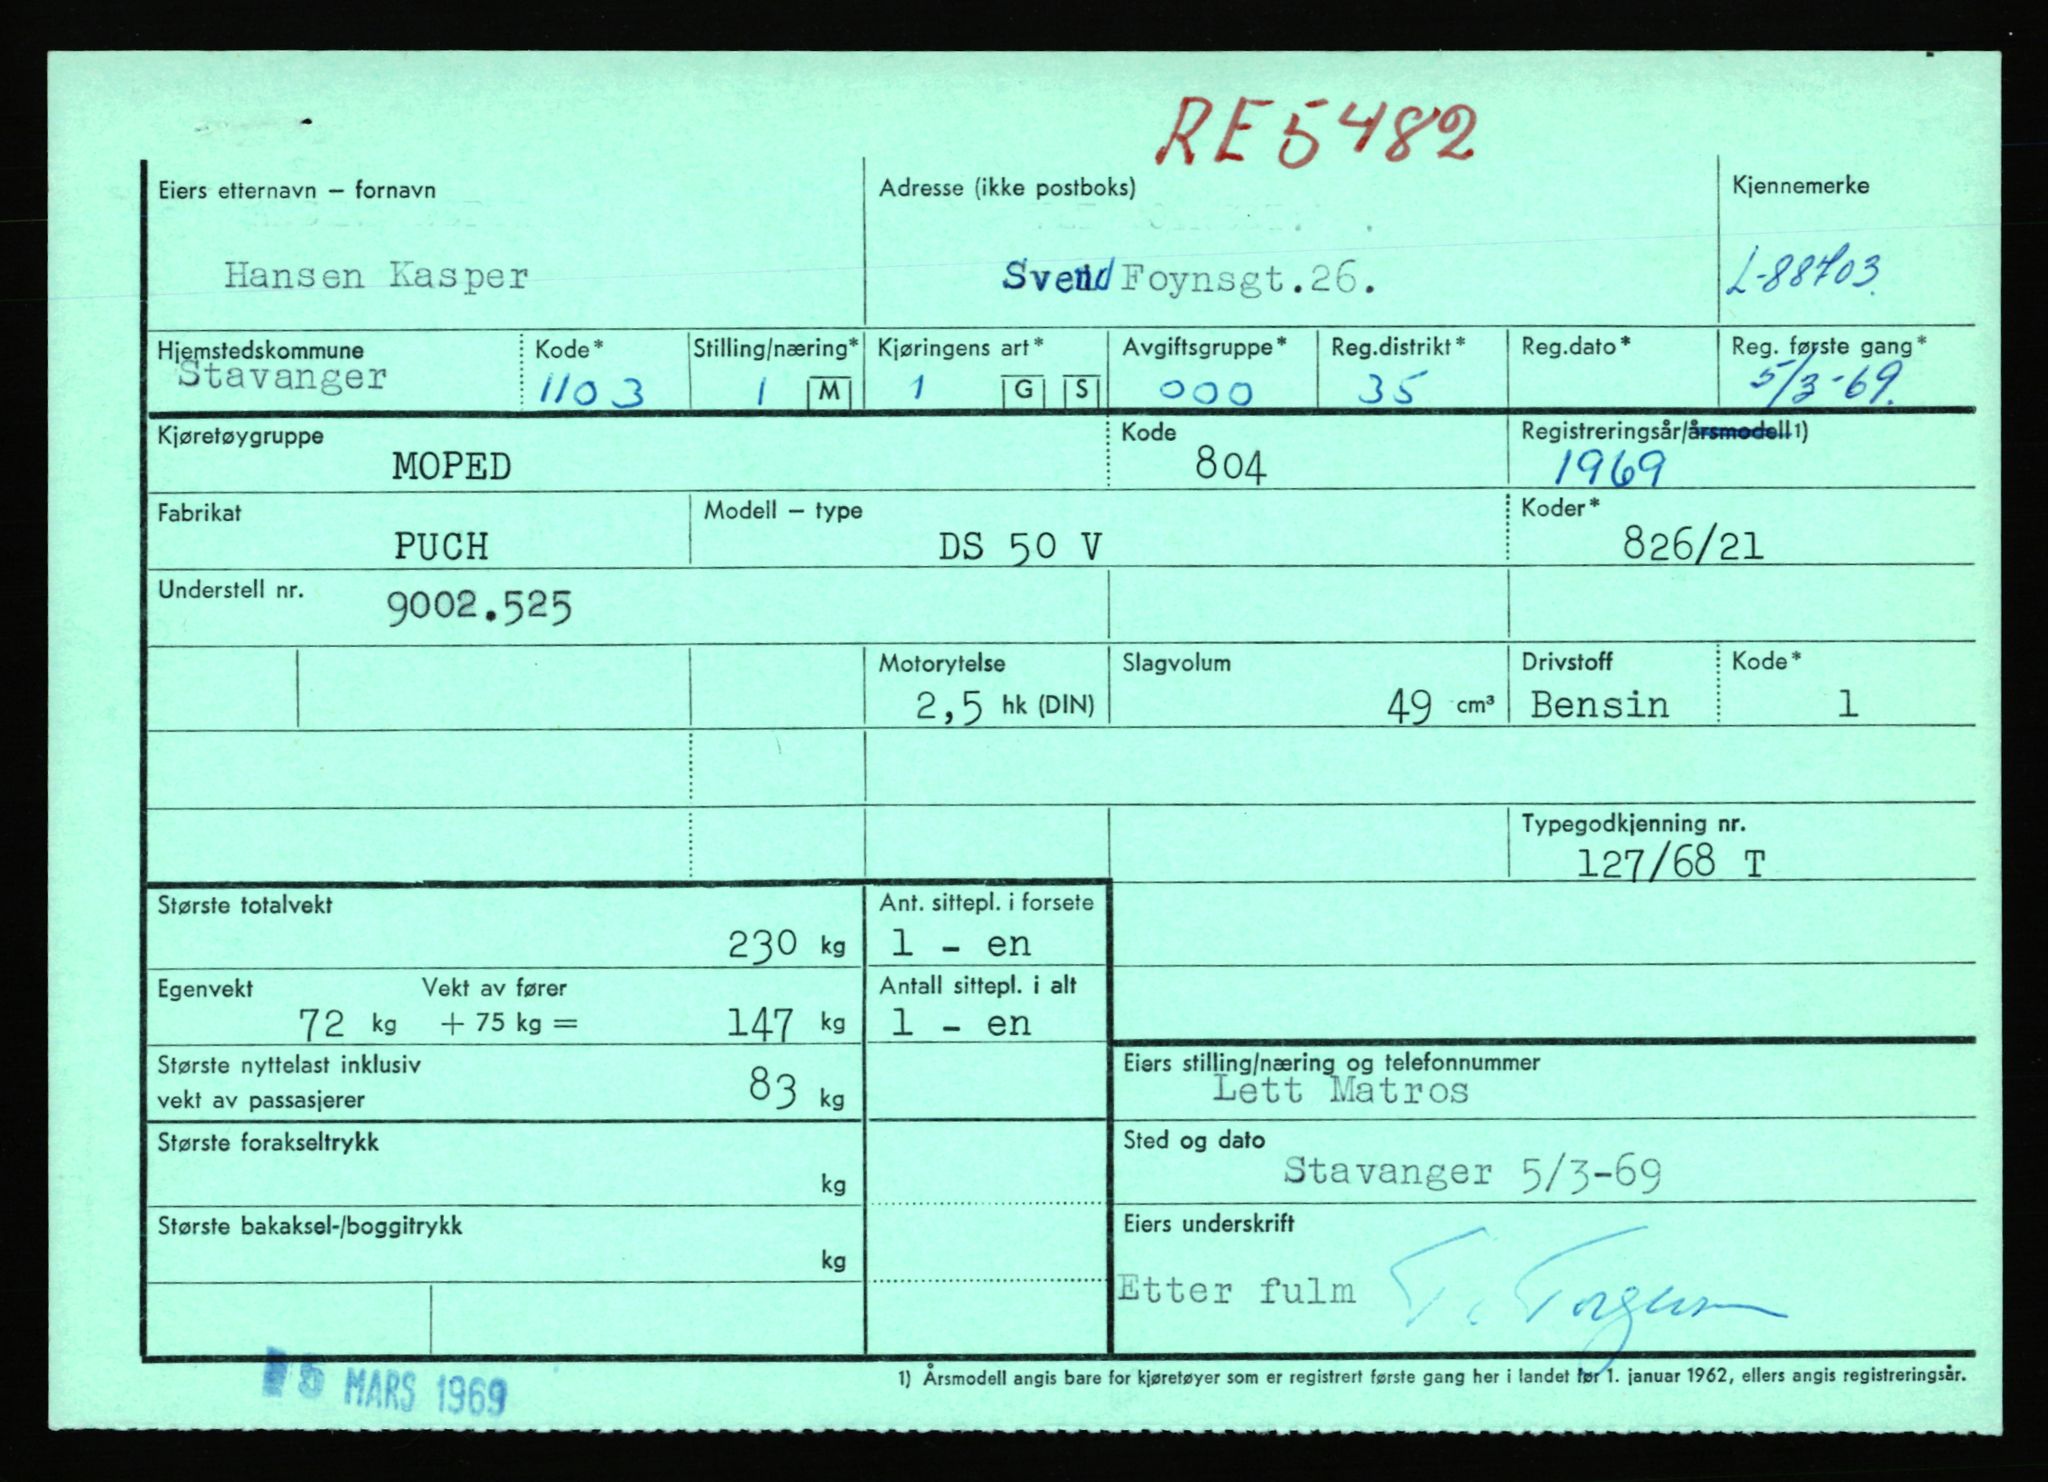 RE 5482
Eiers etternavn – fornavn
Adresse (ikke postboks)
Kjennemerke
Hansen Kasper
Svend Foynsgt.26.
L-88703.
Hjemstedskommune Kode* Stilling/næring* Kjøringens art* Avgiftsgruppe* Reg.distrikt* Reg.dato* Reg. første gang*
Stavanger 1103 1 M 1 G S 000 35 5/3-69.
Kjøretøygruppe Kode Registreringsår/årsmodell 1)
MOPED 804 1969
Fabrikat Modell – type Koder*
PUCH DS 50 V 826/21
Understell nr. 9002.525
Motorytelse Slagvolum Drivstoff Kode*
2,5 hk (DIN) 49 cm³ Bensin 1
Typegodkjenning nr.
127/68 T
Største totalvekt Ant. sittepl. i forsete
230 kg 1 - en
Egenvekt Vekt av fører Antall sittepl. i alt
72 kg + 75 kg = 147 kg 1 - en
Største nyttelast inklusiv
vekt av passasjerer 83 kg
Eiers stilling/næring og telefonnummer
Lett Matros
Største forakseltrykk
kg
Sted og dato
Stavanger 5/3-69
Største bakaksel-/boggitrykk
kg
Eiers underskrift
Etter fulm T. Torgersen
1) Årsmodell angis bare for kjøretøyer som er registrert første gang her i landet før 1. januar 1962, ellers angis registreringsår.
5 MARS 1969